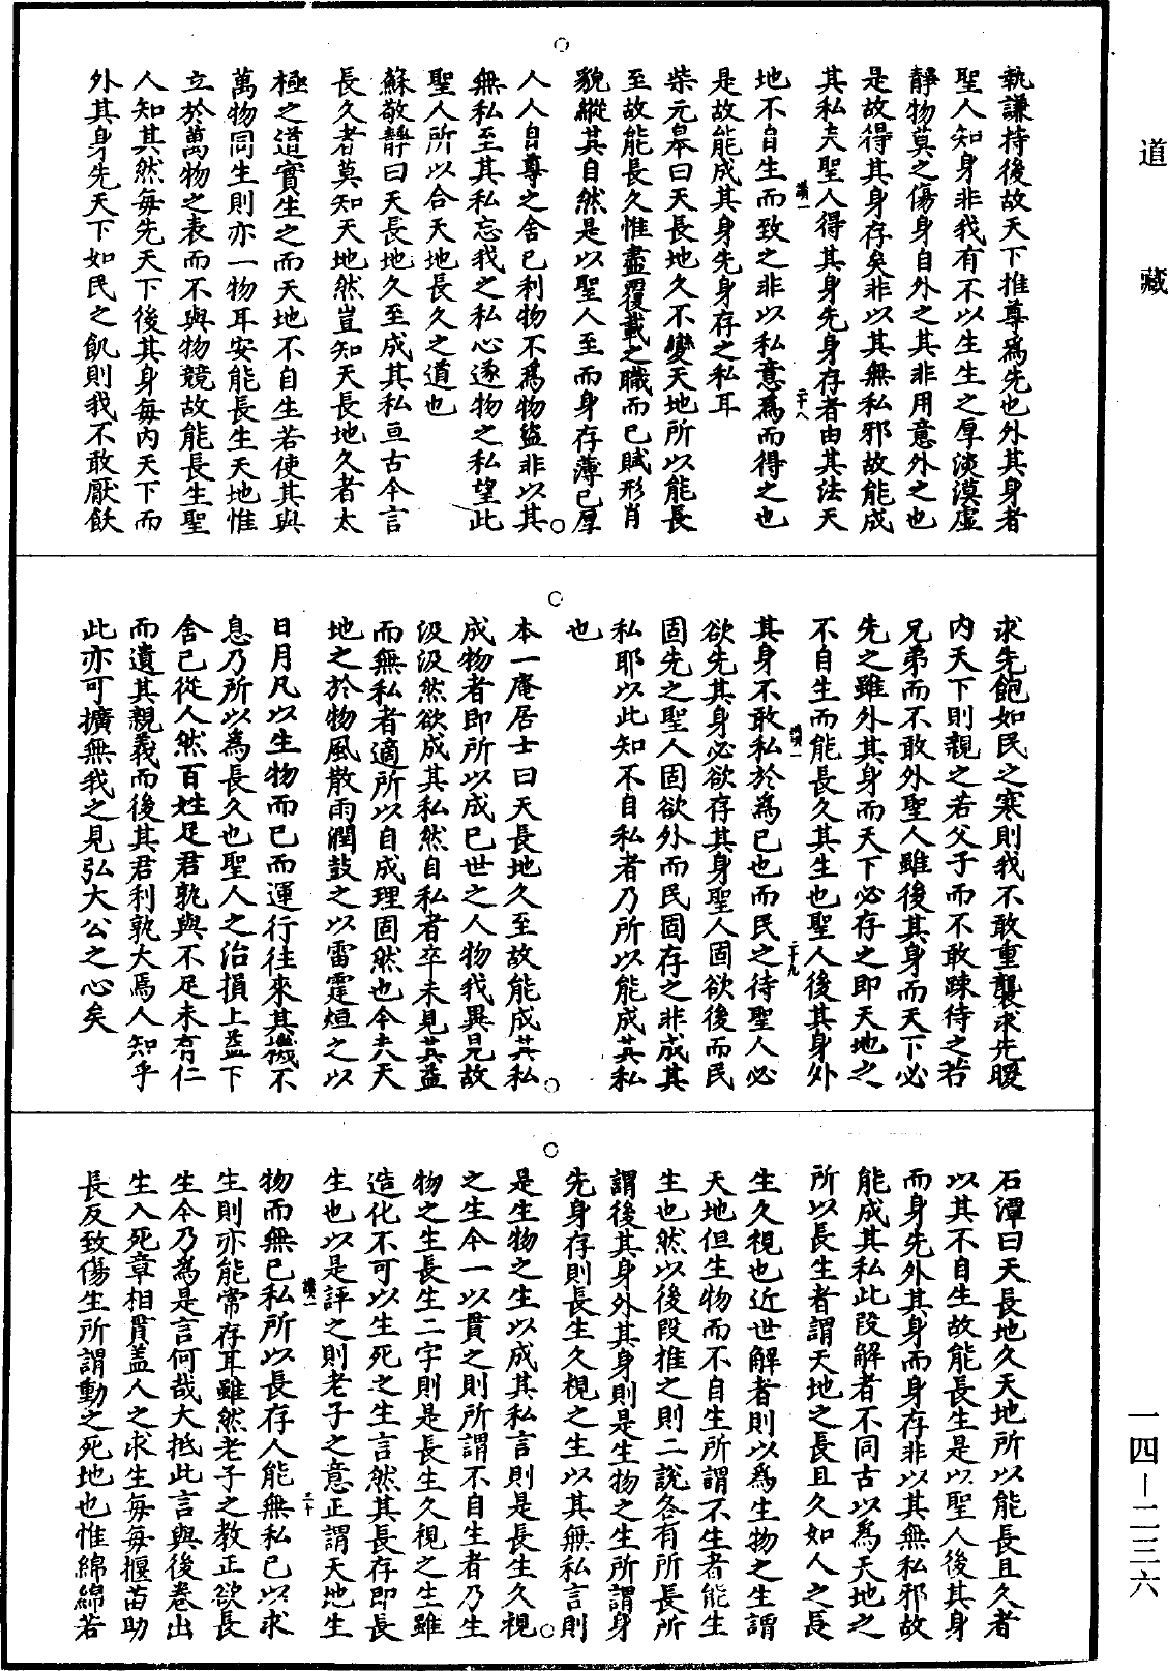 道藏
執謙持後故天下推尊為先也外其身者
聖人知身非我有不以生生之厚淡漠虛
靜物莫之傷身自外之其非用意外之也
是故得其身存矣非以其無私邪故能成
其私夫聖人得其身先身存者由其法天
讚一
二十八
地不自生而致之非以私意為而得之也
是故能成其身先身存之私耳
柴元皋曰天長地久不變天地所以能長
至故能長久惟盡覆載之職而已賦形肖
貌縱其自然是以聖人至而身存薄已厚
人人自尊之舍已利物不為物盜非以其
無私至其私忘我之私心逐物之私望此
聖人所以合天地長久之道也
蘇敬靜曰天長地久至成其私亘古今言
長久者莫知天地然豈知天長地久者太
極之道實生之而天地不自生若使其與
萬物同生則亦一物耳安能長生天地惟
立於萬物之表而不與物競故能長生聖
人知其然每先天下後其身每內天下而
外其身先天下如民之飢則我不敢厭飫
求先飽如民之寒則我不敢重襲求先暖
內天下則親之若父子而不敢踈待之若
兄弟而不敢外聖人雖後其身而天下必
先之雖外其身而天下必存之即天地之
不自生而能長久其生也聖人後其身外
讚一
二十九
其身不敢私於為已也而民之待聖人必
欲先其身必欲存其身聖人固欲後而民
固先之聖人固欲外而民固存之非成其
私耶以此知不自私者乃所以能成其私
也
本一庵居士曰天長地久至故能成其私
成物者即所以成已世之人物我異見故
汲汲然欲成其私然自私者卒未見其益
而無私者適所以自成理固然也今夫天
地之於物風散雨潤鼓之以雷霆烜之以
日月凡以生物而已而運行往來其機不
息乃所以為長久也聖人之治損上益下
舍已從人然百姓足君孰與不足未有仁
而遺其親義而後其君利孰大焉人知乎
此亦可擴無我之見弘大公之心矣
石潭曰天長地久天地所以能長且久者
以其不自生故能長生是以聖人後其身
而身先外其身而身存非以其無私邪故
能成其私此段解者不同古以為天地之
所以長生者謂天地之長且久如人之長
生久視也近世解者則以為生物之生謂
天地但生物而不自生所謂不生者能生
生也然以後段推之則二說各有所長所
謂後其身外其身則是生物之生所謂身
先身存則長生久視之生以其無私言則
是生物之生以成其私言則是長生久視
之生今一以貫之則所謂不自生者乃生
物之生長生二字則是長生久視之生雖
造化不可以生死之生言然其長存即長
生也以是評之則老子之意正謂天地生
讚一
三十
物而無已私所以長存人能無私已以求
生則亦能常存耳雖然老子之教正欲長
生今乃為是言何哉大抵此言與後卷出
生入死章相貫盖人之求生每每揠苗助
長反致傷生所謂動之死地也惟綿綿若
一四—二三六